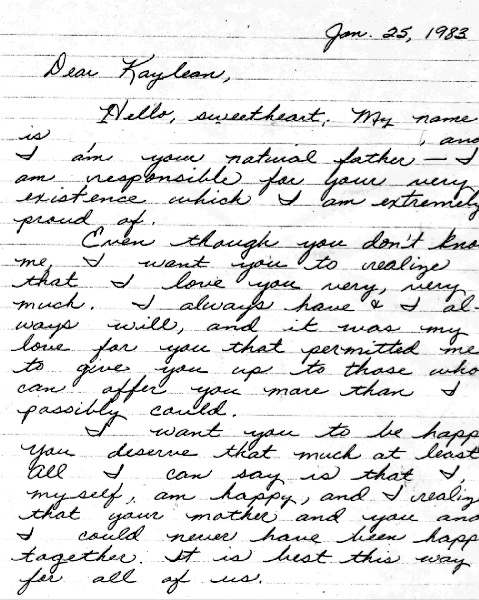 Jan. 25, 1983
Dear Kaylean,
Hello, sweetheart. My name
is , and
I am your natural father — I
am responsible for your very
existence which I am extremely
proud of.
Even though you don't kno
me, I want you to realize
that I love you very, very
much. I always have & I al-
ways will, and it was my
love for you that permitted me
to give you up to those who
can offer you more than I
possibly could.
I want you to be happ
you deserve that much at least
All I can say is that I,
myself, am happy, and I realiz
that your mother and you and
I could never have been happ
together. It is best this way
for all of us.